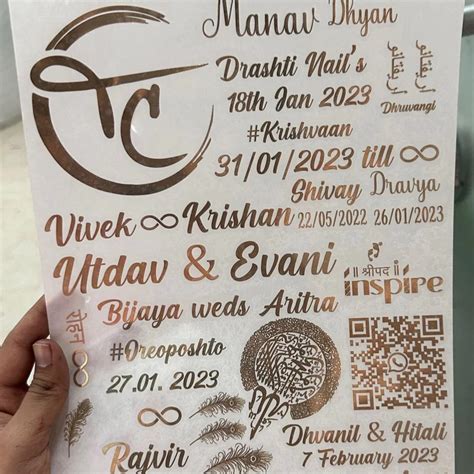 Manav Dhyan
TC
Drashti Nail's
18th Jan 2023
Dhruvangi
#Krishvaan
31/01/2023 till ∞
Shivay Dravya
Vivek ∞ Krishan 22/05/2022 26/01/2023
Utdav & Evani
॥ श्रीपद ॥
inspire
Bijaya weds Aritra
रोहन ∞
#Oreoposhto
27.01. 2023
∞
Rajvir
Dhwanil & Hitali
7 February 2023